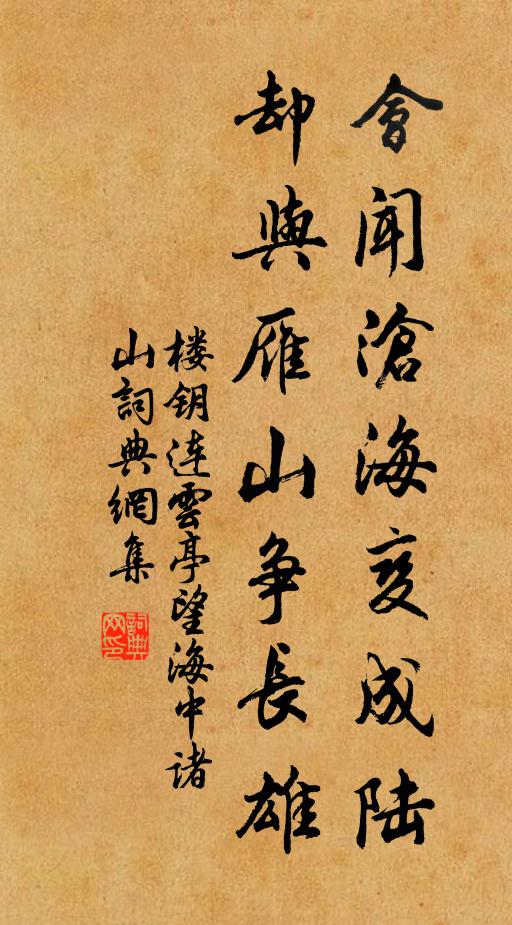 會闻滄海变成陆
却與雁山争長雄
楼钥连雲亭望海中诸
山詞典網集
詞典
网印